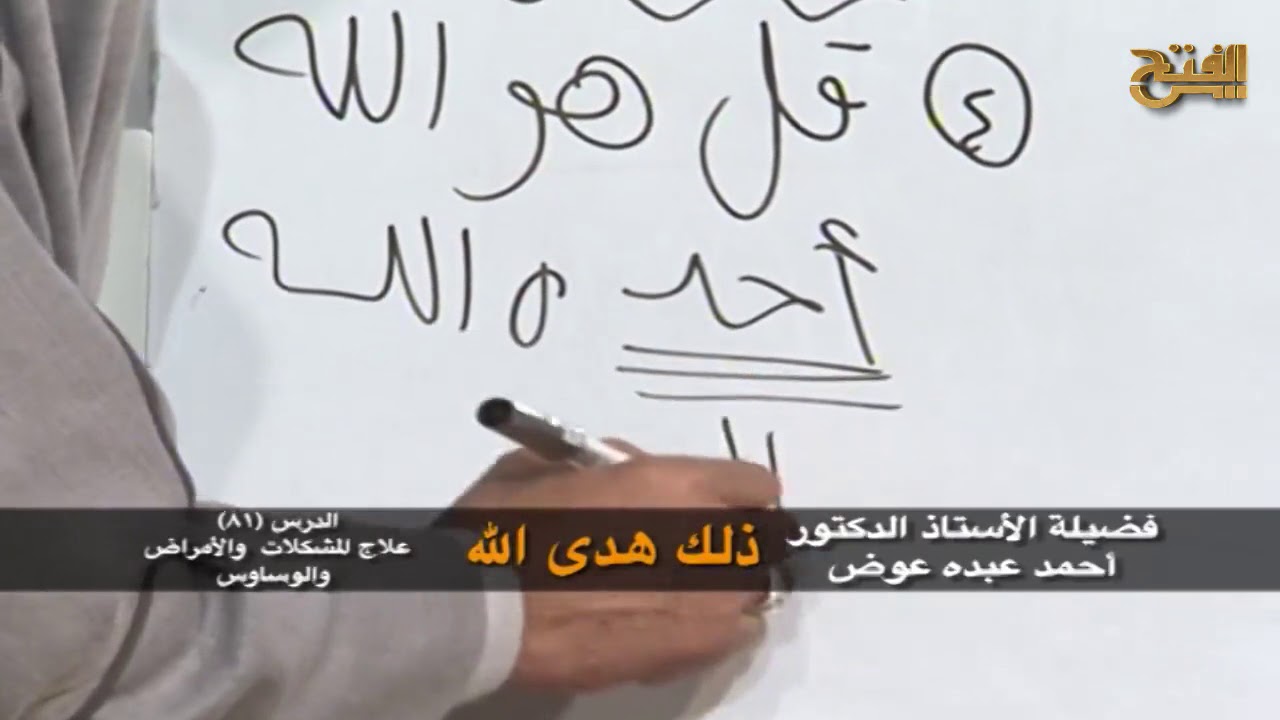 الفتح
٤ قل هو الله
أحد ٥ الله
ال
فضيلة الأستاذ الدكتور
أحمد عبده عوض
ذلك هدى الله
الدرس (٨١)
علاج للمشكلات والأمراض
والوساوس